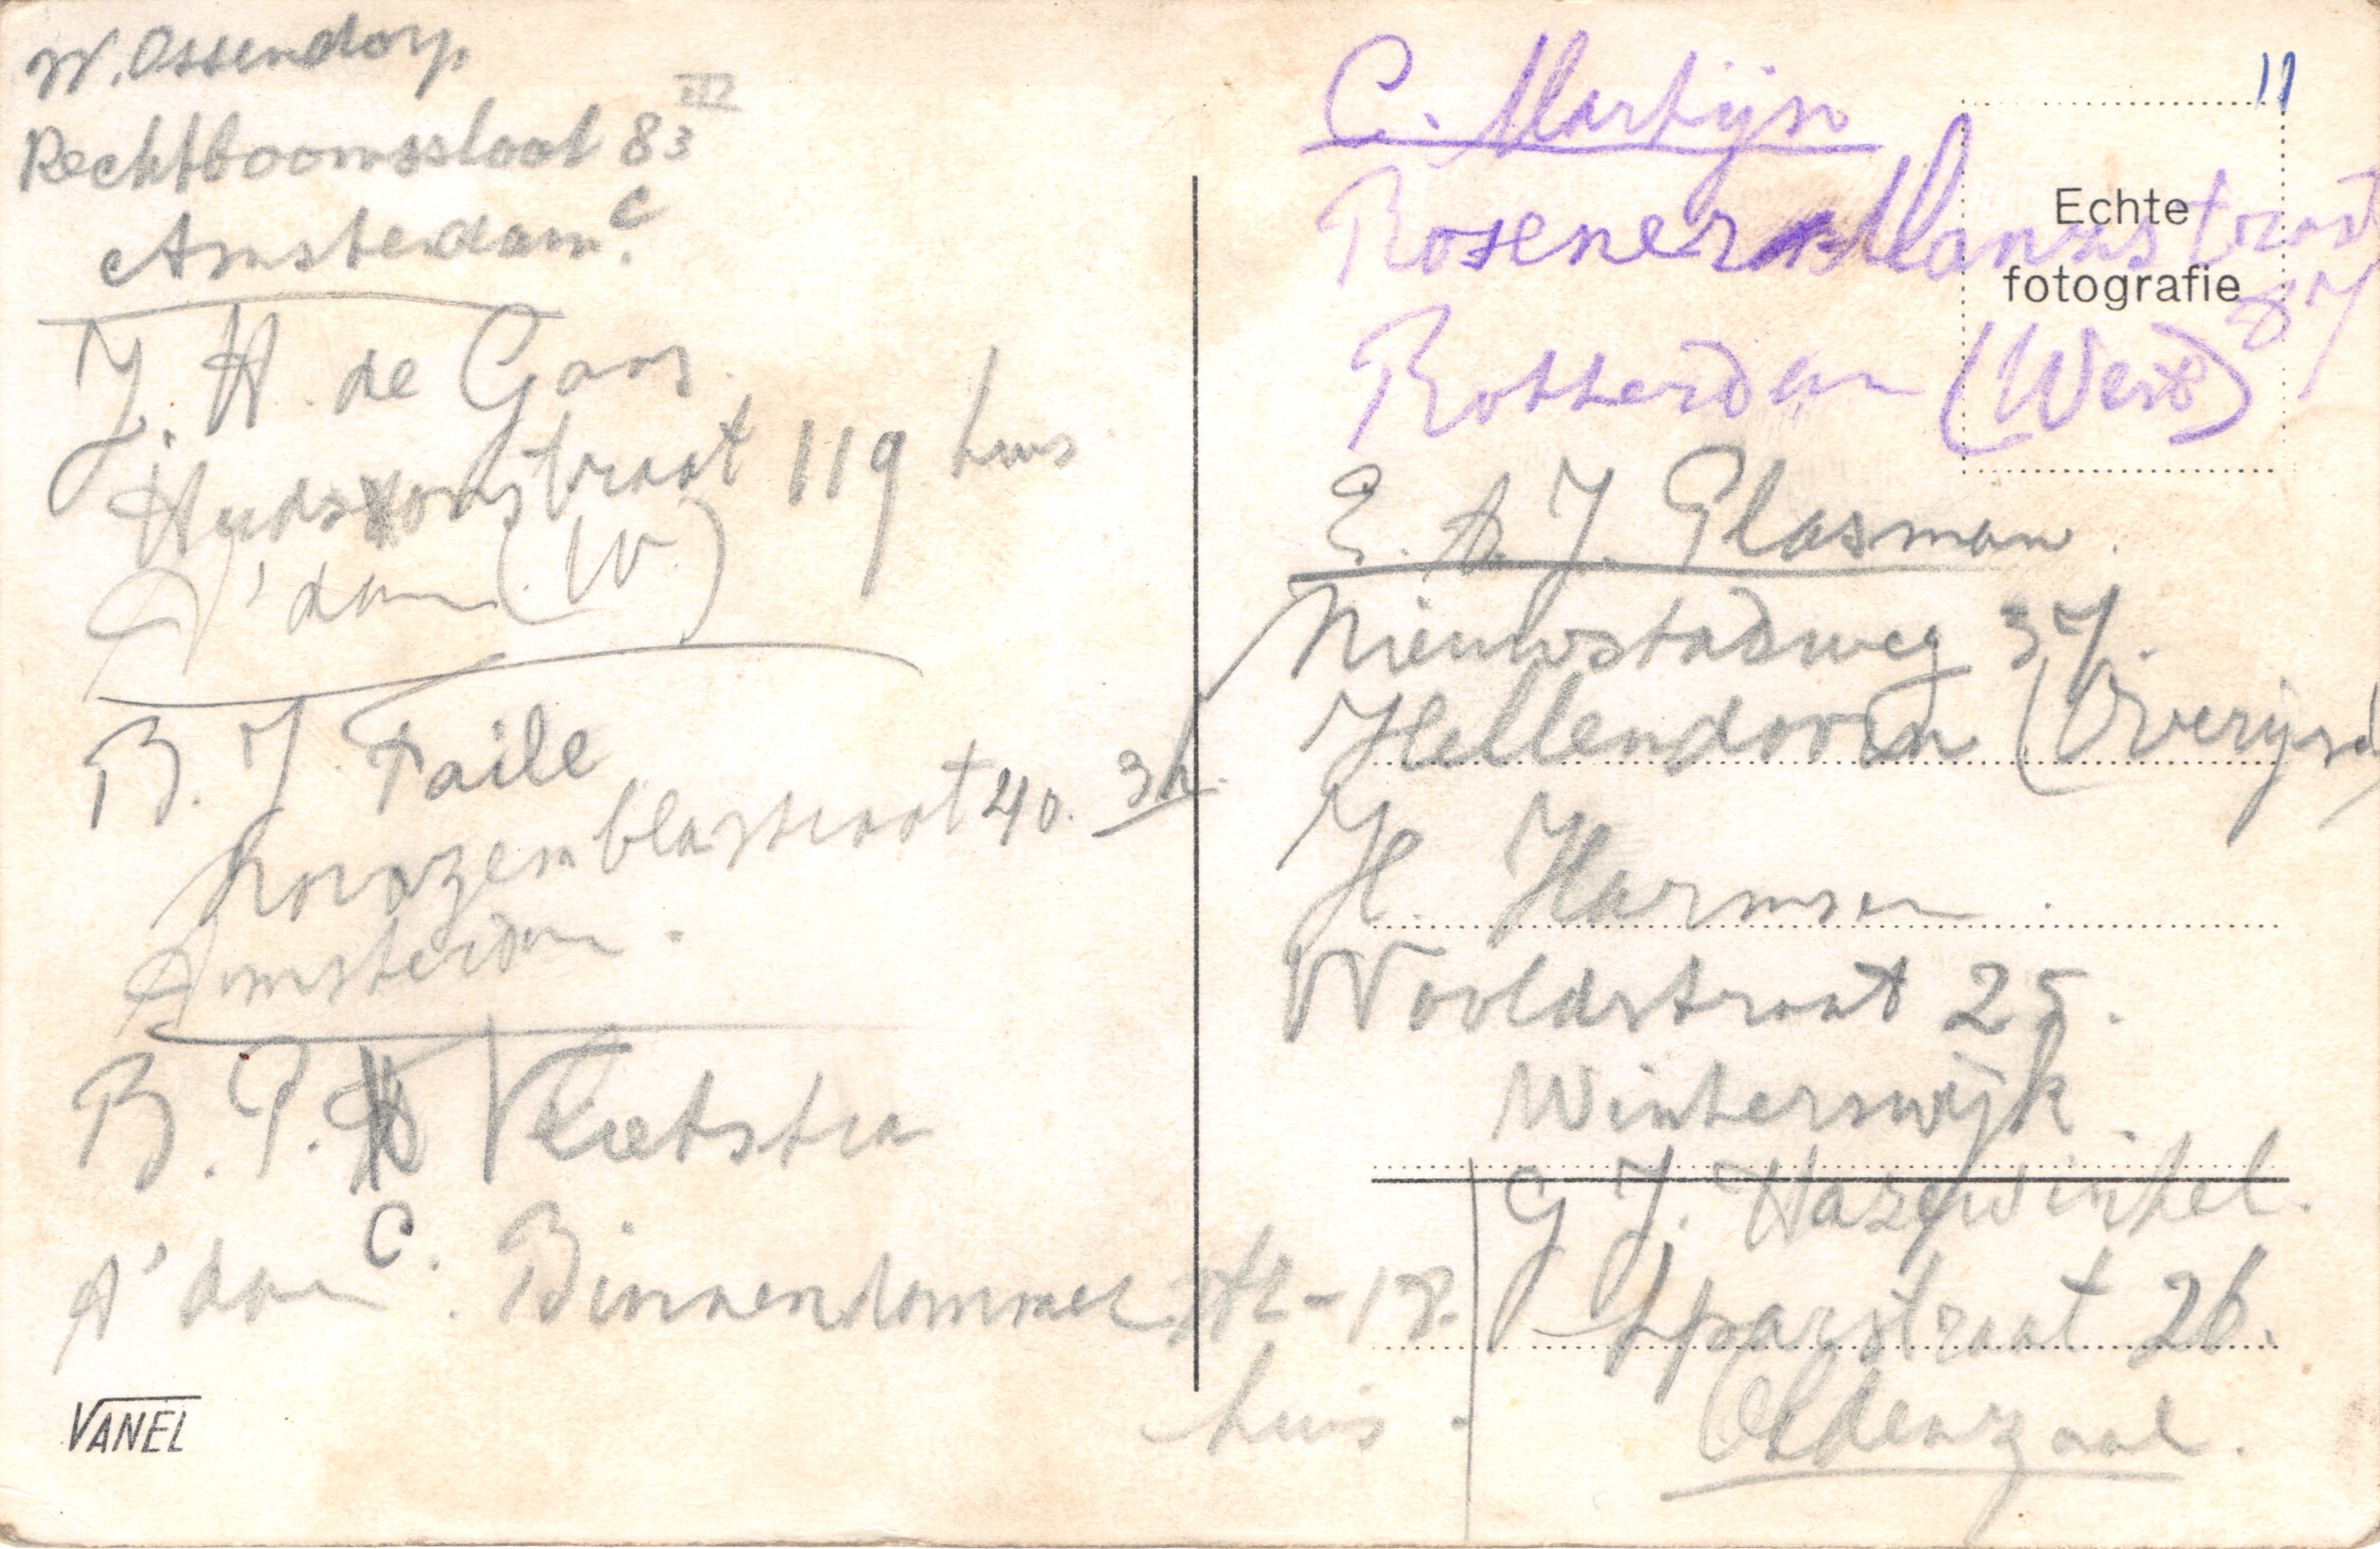 W. Ossendorp
Rechtboomssloot 83 III
Amsterdam. C
J. H. de Goos
Hudsonstraat 119 huis
A'dam (W.)
B. J. Faile
Novazemblastraat 40. 3h.
Amsterdam.
B. P. Vlietstra
A'dam C. Binnendommer 18.
huis.
VANEL
11
C. Martijn
Rosener Manzstraat
87
Rotterdam (West)
Echte
fotografie
E. A. J. Glasman.
Nieuwstadsweg 37.
Hellendoorn (Overijsel)
H. Harmsen.
Wooldstraat 25.
Winterswijk.
G J. Hazewinkel.
Sparstraat 26.
Oldenzaal.